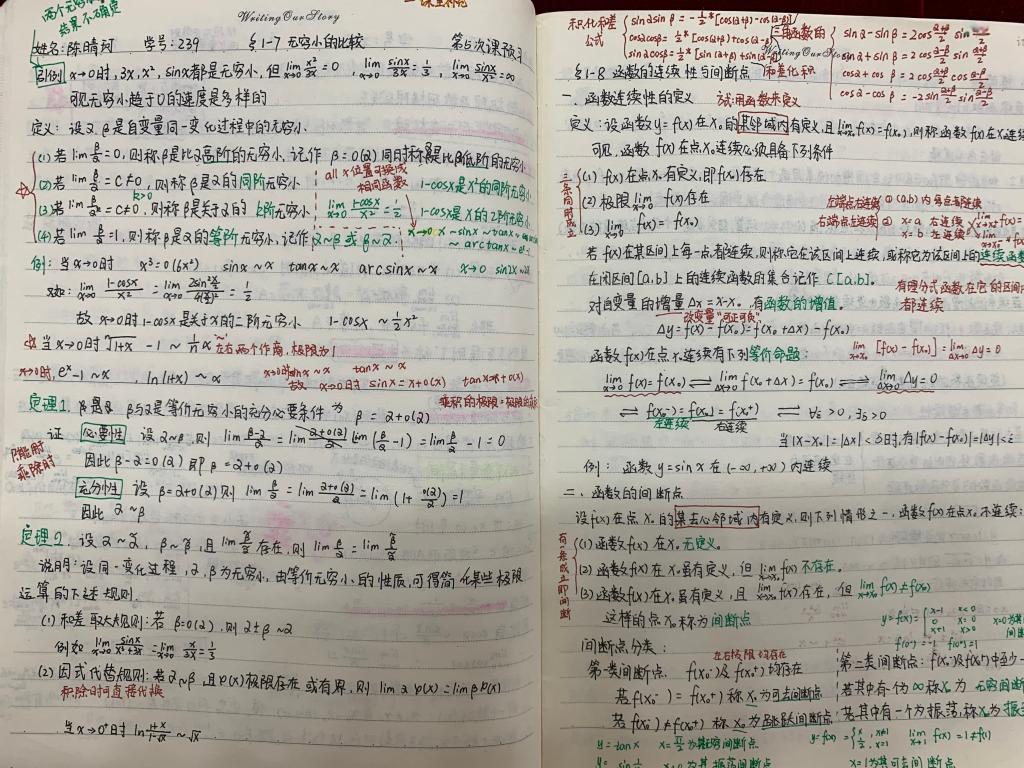 两个无穷
结果不确定
Writing Our Story
姓名: 陈晴珂 学号: 239 §1-7 无穷小的比较 第5次课预习
引例 x→0时, 3x, x², sinx都是无穷小, 但 lim x→0 x²/3x = 0 lim x→0 sinx/3x = 1/3, lim x→0 sinx/x² = ∞
可见无穷小趋于0的速度是多样的
定义: 设α, β是自变量同一变化过程中的无穷小.
(1) 若 lim β/α = 0, 则称β是比α高阶的无穷小, 记作 β = o(α) 同时称α是比β低阶的无穷小
(2) 若 lim β/α = C≠0, 则称β是α的同阶无穷小
k>0
(3) 若 lim β/α^k = C≠0, 则称β是关于α的k阶无穷小
(4) 若 lim β/α = 1, 则称β是α的等阶无穷小, 记作 α~β 或 β~α
all x位置可换成
相同函数
lim x→0 (1-cosx)/x² = 1/2
1-cosx是x²的同阶无穷小
1-cosx是x的2阶无穷小
x→0 x ~ sinx ~ tanx ~
~ arctanx ~
例: 当x→0时 x³ = o(6x²) sinx ~ x tanx ~ x arcsinx ~ x x→0 sin2x ~ 2x
又如: lim x→0 (1-cosx)/x² = lim x→0 2sin²(x/2)/4(x/2)² = 1/2
故 x→0时 1-cosx是关于x的二阶无穷小 1-cosx ~ 1/2 x²
☆ 当x→0时 ⁿ√(1+x) - 1 ~ 1/n x ~ 左右两个作商, 极限为1
x→0时, eˣ-1 ~ x, ln(1+x) ~ x
x→0时 sinx ~ x tanx ~ x
故 x→0时 sinx = x+o(x) tanx = x+o(x)
乘积的极限=极限
定理1. β与α是等价无穷小的充分必要条件为 β = α+o(α)
证 必要性 设α~β, 则 lim (β-α)/α = lim (β/α - 1) = lim β/α - 1 = 0
因此 β-α = o(α) 即 β = α+o(α)
乘除时
充分性 设 β = α+o(α) 则 lim β/α = lim (α+o(α))/α = lim (1+ o(α)/α) = 1
因此 α~β
定理2. 设 α~α̃, β~β̃, 且 lim β̃/α̃ 存在, 则 lim β/α = lim β̃/α̃
说明: 设同一变化过程, α, β为无穷小, 由等价无穷小的性质, 可得简化某些极限
运算的下述规则.
(1) 和差取大规则: 若 β = o(α), 则 α±β ~ α
例如 lim x→0 sinx/(x³+3x) = lim x→0 x/3x = 1/3
(2) 因式代替规则: 若α~β, 且φ(x)极限存在或有界, 则 lim αφ(x) = lim βφ(x)
积除时可直接代换
当x→0⁺时 ln (1+x)/(1-√x) ~ √x
积化和差
公式
sinαsinβ = -1/2*[cos(α+β)-cos(α-β)]
cosαcosβ = 1/2*[cos(α+β)+cos(α-β)]
sinαcosβ = 1/2*[sin(α+β)+sin(α-β)]
三角函数的
和差化积
sinα-sinβ = 2cos (α+β)/2 sin
sinα+sinβ = 2sin (α+β)/2 cos (α-β)/2
cosα+cosβ = 2cos (α+β)/2 cos (α-β)/2
cosα-cosβ = -2sin (α+β)/2 sin (α-β)/2
Writing Our Story
§1-8 函数的连续性与间断点
一. 函数连续性的定义 试用函数来定义
定义: 设函数 y=f(x) 在x₀的某邻域内有定义, 且 lim x→x₀ f(x) = f(x₀), 则称函数f(x)在x₀连续
可见, 函数 f(x)在点x₀连续必须具备下列条件
三条同时成立
(1) f(x)在点x₀有定义, 即f(x₀)存在
(2) 极限 lim x→x₀ f(x)存在
(3) lim x→x₀ f(x) = f(x₀)
左端点右连续
右端点左连续
① (a,b) 内每点都连续
② x=a 右连续
x=b 左连续
若f(x)在某区间上每一点都连续, 则称它在该区间上连续, 或称它为该区间上的连续函数
在闭区间[a,b]上的连续函数的集合记作 C[a,b].
有理分式函数在它的区间内
都连续
对自变量的增量 Δx = x-x₀, 有函数的增值.
改变量"可正可负"
Δy = f(x)-f(x₀) = f(x₀+Δx)-f(x₀)
函数f(x)在点x₀连续有下列等价命题:
lim x→x₀ [f(x)-f(x₀)] = lim Δx→0 Δy = 0
lim x→x₀ f(x) = f(x₀) ⇌ lim Δx→0 f(x₀+Δx) = f(x₀) ⟺ lim Δx→0 Δy = 0
⇌ f(x₀⁻) = f(x₀) = f(x₀⁺) ⇌ ∀ε>0, ∃δ>0
左连续 右连续
当|x-x₀| = |Δx| < δ时, 有|f(x)-f(x₀)| = |Δy| < ε
例: 函数 y = sinx 在 (-∞, +∞) 内连续
二. 函数的间断点
设f(x)在点x₀的某去心邻域内有定义, 则下列情形之一, 函数f(x)在点x₀不连续:
有一条成立即间断
(1) 函数f(x)在x₀无定义.
(2) 函数f(x)在x₀虽有定义, 但 lim x→x₀ f(x) 不存在.
(3) 函数f(x)在x₀虽有定义, 且 lim x→x₀ f(x)存在, 但 lim x→x₀ f(x) ≠ f(x₀)
这样的点x₀称为间断点
y = f(x) = { x-1 x<0
0 x=0
x+1 x>0
x=0为其
f(0⁻) = -1 f(0⁺) = 1
间断点分类: 左右极限均存在
第一类间断点. f(x₀⁻)及f(x₀⁺)均存在
若f(x₀⁻) = f(x₀⁺) 称x₀为可去间断点
若f(x₀⁻) ≠ f(x₀⁺) 称x₀为跳跃间断点
第二类间断点: f(x₀⁻)及f(x₀⁺)中至少一
若其中有一个为∞称x₀为无穷间断
若其中有一个为振荡, 称x₀为振荡
y = tanx x = π/2 为其无穷间断点
y = sin 1/x x=0为其振荡间断点
y = f(x) = { x, x≠1
1/2, x=1
lim x→1 f(x) = 1 ≠ f(1)
x=1为其可去间断点